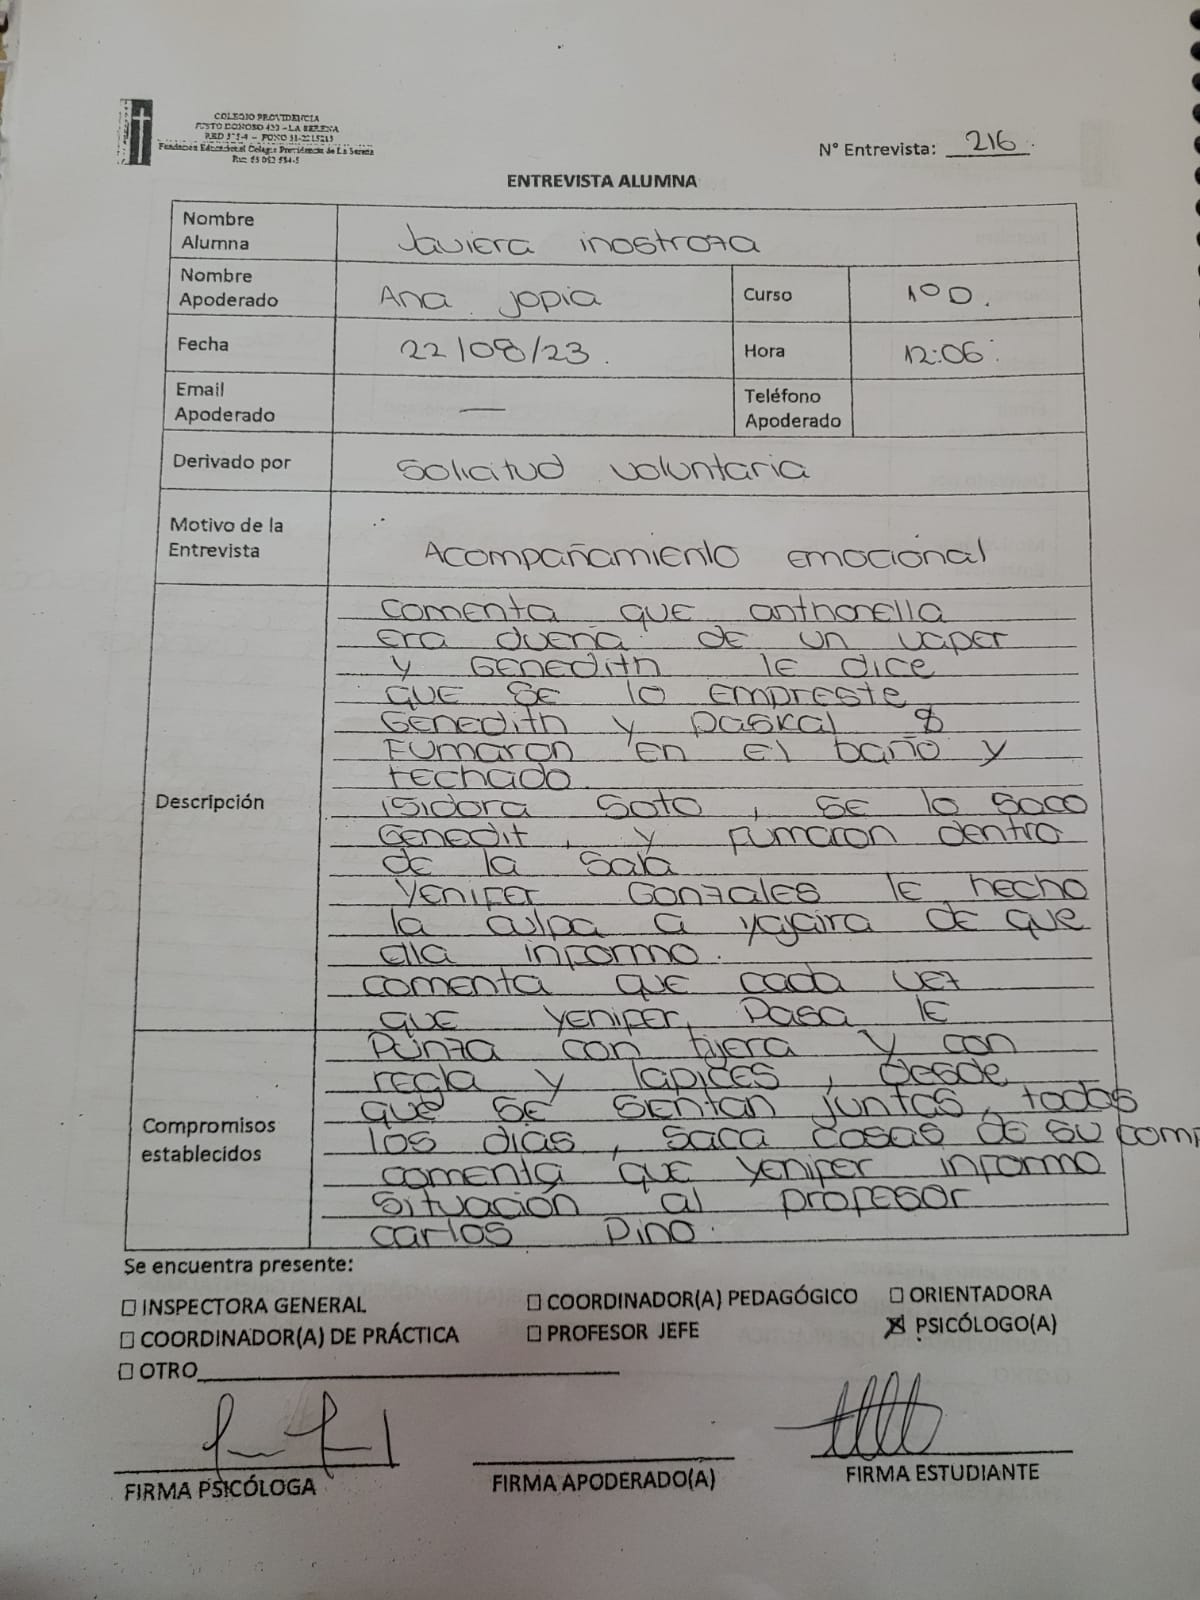 COLEGIO PROVIDENCIA
JUSTO DONOSO 420 – LA SERENA
Fundación Educacional Colegio Providencia de La Serena
N° Entrevista: 216.
ENTREVISTA ALUMNA
Nombre Alumna Javiera inostroza
Nombre Apoderado Ana Jopia Curso 1° D.
Fecha 22/08/23. Hora 12:06.
Email Apoderado — Teléfono Apoderado
Derivado por Solicitud voluntaria
Motivo de la Entrevista Acompañamiento emocional
Descripción
comenta que anthonella
era dueña de un vaper
y Genedith le dice
que se lo empreste
Genedith y paskal
fumaron en el baño y
techado
isidora Soto, se lo saco
Genedit, y fumaron dentro
de la sala
Yenifer Gonzales le hecho
la culpa a yajaira de que
ella informo.
comenta que cada vez
que yenifer, pasa le
Compromisos establecidos
Punza con tijera y con
regla y lapices, desde
que se sientan juntas, todos
los dias, saca cosas de su comp
comenta que yenifer informo
situación al profesor
carlos Pino.
Se encuentra presente:
☐ INSPECTORA GENERAL ☐ COORDINADOR(A) PEDAGÓGICO ☐ ORIENTADORA
☐ COORDINADOR(A) DE PRÁCTICA ☐ PROFESOR JEFE ☒ PSICÓLOGO(A)
☐ OTRO
FIRMA PSICÓLOGA FIRMA APODERADO(A) FIRMA ESTUDIANTE